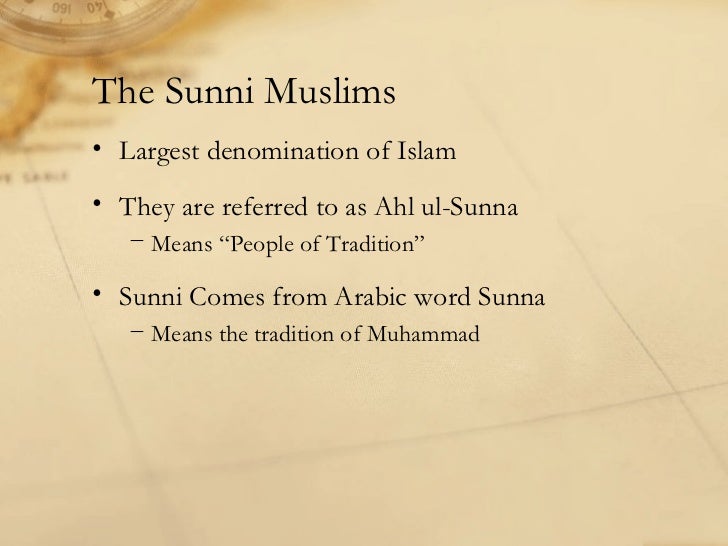 160
The Sunni Muslims
• Largest denomination of Islam
• They are referred to as Ahl ul-Sunna
– Means “People of Tradition”
• Sunni Comes from Arabic word Sunna
– Means the tradition of Muhammad